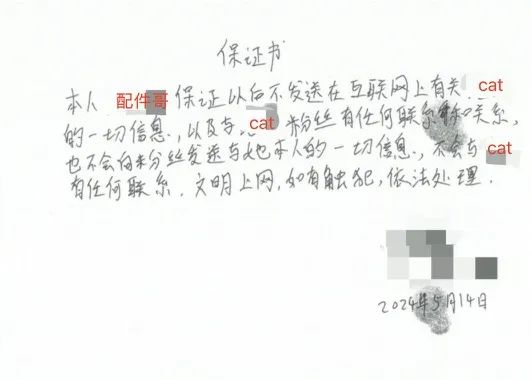 保证书
本人 配件哥 保证以后不发送在互联网上有关 cat
的一切信息、以及与 cat 粉丝有任何联系和关系,
也不会向粉丝发送与她本人的一切信息、不会与 cat
有任何联系. 文明上网, 如有触犯, 依法处理.
2024年5月14日